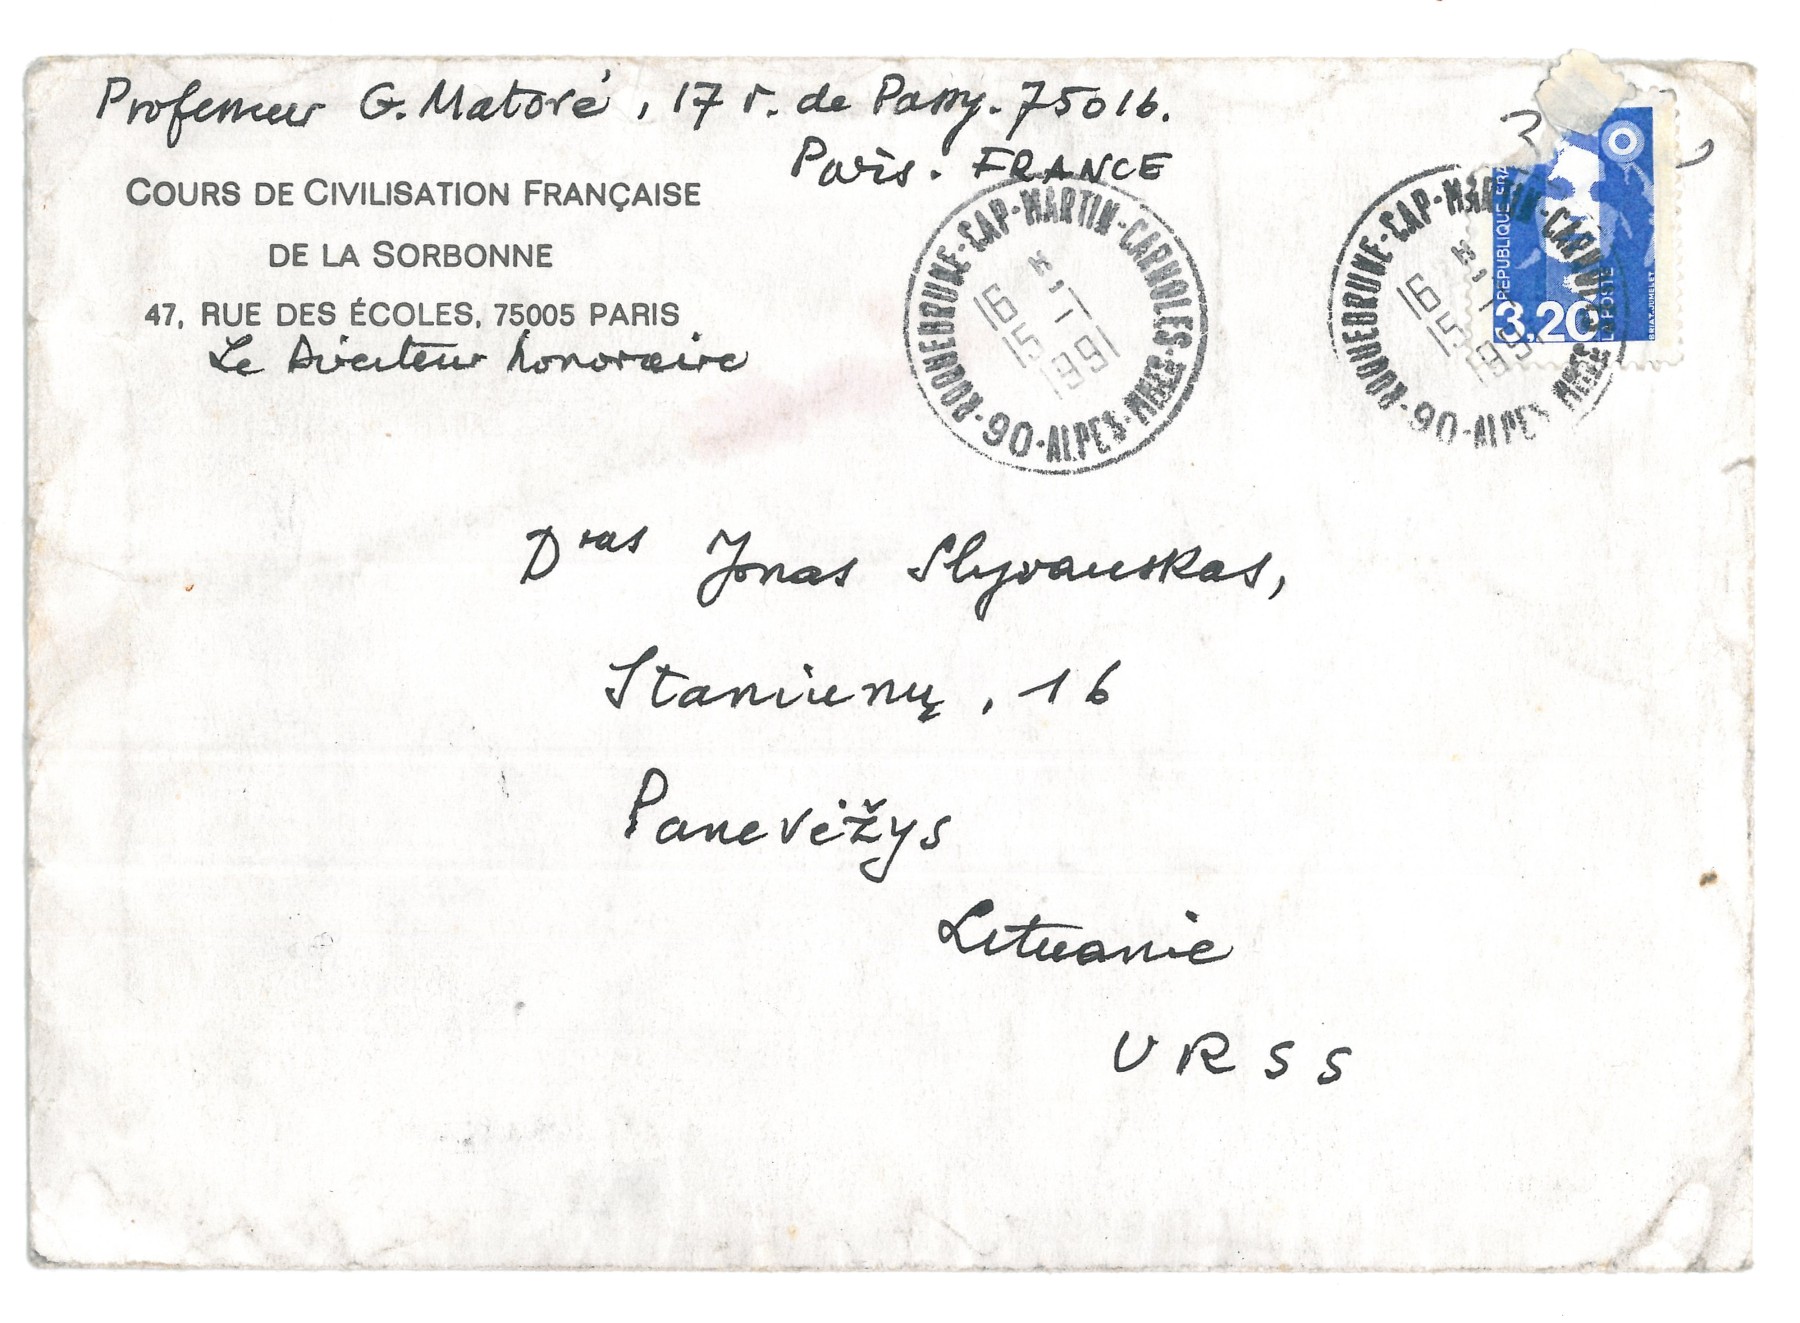 Professeur G. Matoré, 17 r. de Passy. 75016.
Paris. FRANCE
COURS DE CIVILISATION FRANÇAISE
DE LA SORBONNE
47, RUE DES ÉCOLES, 75005 PARIS
Le Directeur honoraire
ROQUEBRUNE-CAP-MARTIN-CARNOLES
16 H
1991
06-ALPES-MMES
ROQUEBRUNE-CAP-MARTIN-CARNOLES
06-ALPES MMES
REPUBLIQUE FRA
3,20
LA POSTE
BRIAT.JUMELET
Dras Jonas Slyvauskas,
Staniūnų, 16
Panevėžys
Lituanie
URSS